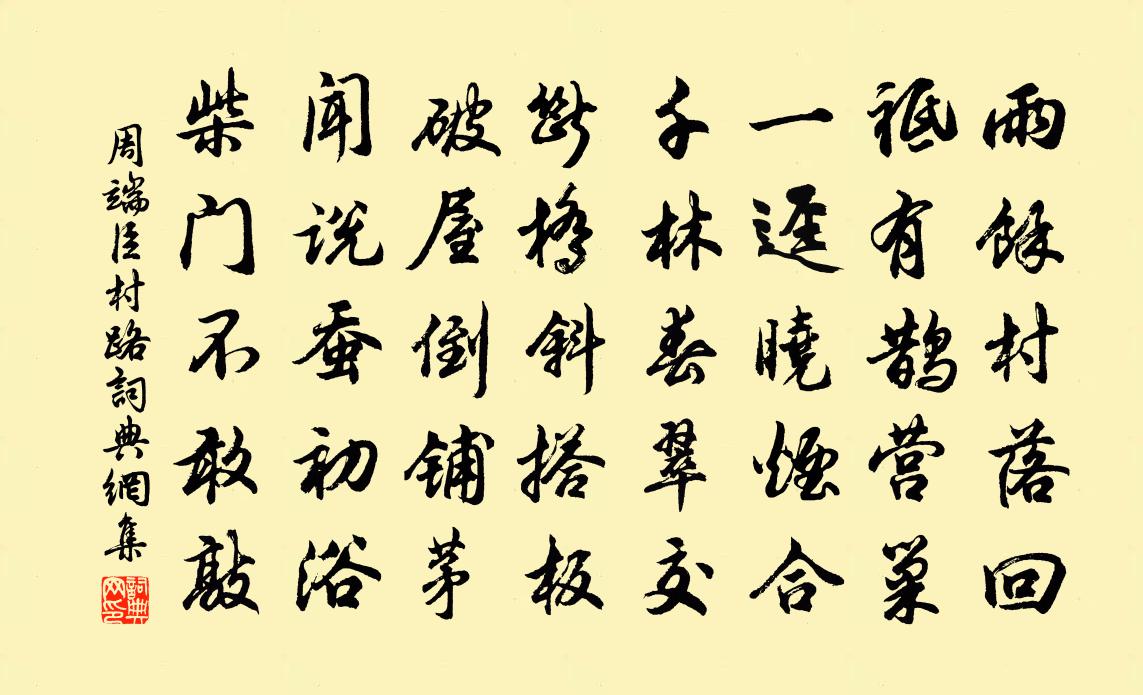 雨餘村落回
祗有鹊营巢
一逕曉煙合
千林春翠交
斷橋斜搭板
破屋倒铺茅
闻说蚕初浴
柴门不敢敲
周端臣村路詞典網集
詞典网印